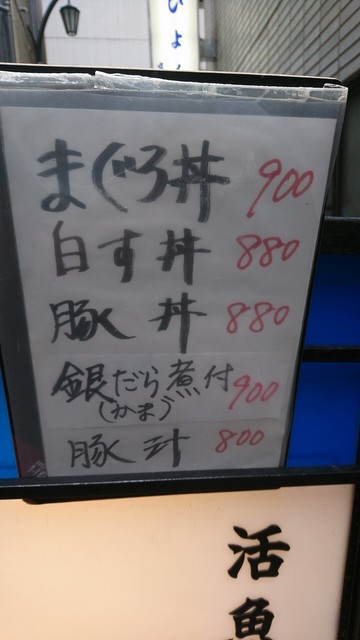 ひよ
まぐろ丼 900
白す丼 880
豚丼 880
銀だら煮付 900
(かま)
豚汁 800
活魚